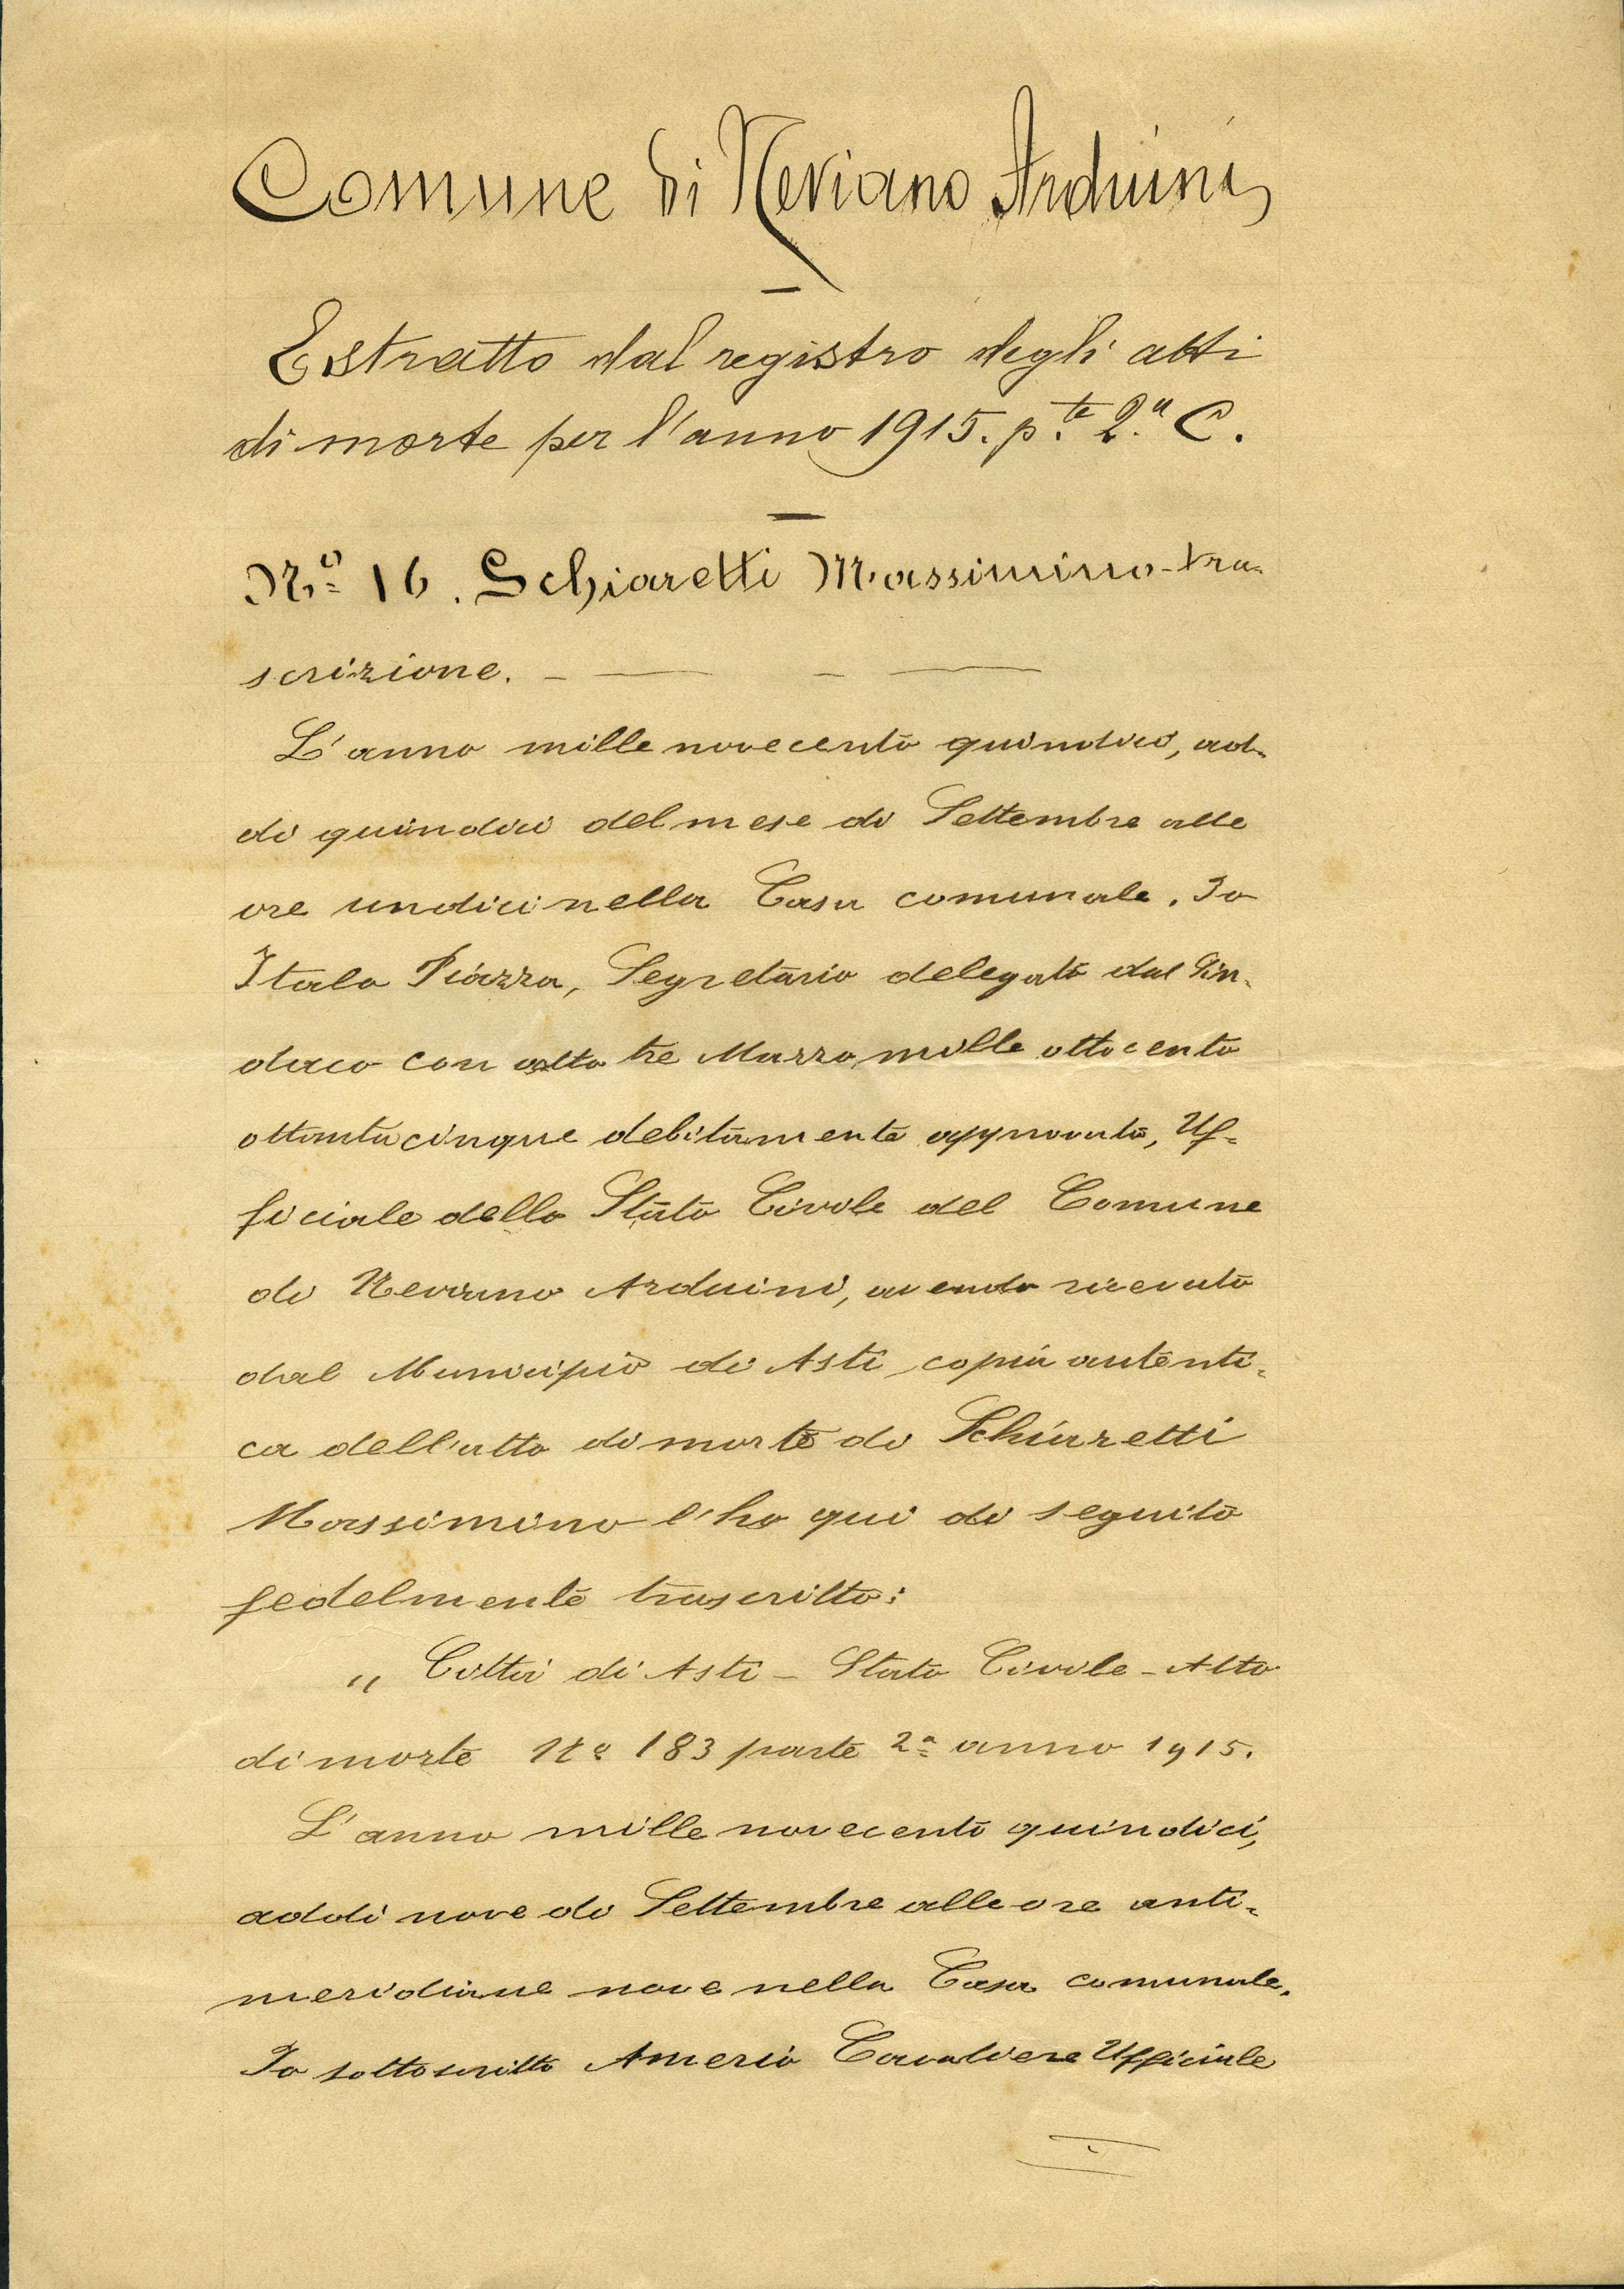 Comune di Neviano Arduini
Estratto dal registro degli atti
di morte per l'anno 1915. p.te 2.a C.
N.o 16. Schiaretti Massimino - tra-
scrizione. - — - —
L'anno mille novecento quindici, ad-
di quindici del mese di Settembre alle
ore undici nella Casa comunale. Io
Italo Piazza, Segretario delegato dal Sin-
daco con atto tre Marzo mille ottocento
ottantacinque debitamente approvato, Uf-
ficiale dello Stato Civile del Comune
di Neviano Arduini, avendo ricevuto
dal Municipio di Asti copia autenti-
ca dell'atto di morte di Schiaretti
Massimino l'ho qui di seguito
fedelmente trascritto:
„ Città di Asti - Stato Civile - Atto
di morte No 183 parte 2a anno 1915.
L'anno mille novecento quindici,
addi nove di Settembre alle ore anti-
meridiane nove nella Casa comunale.
Io sottoscritto Amerio Cavaliere Ufficiale